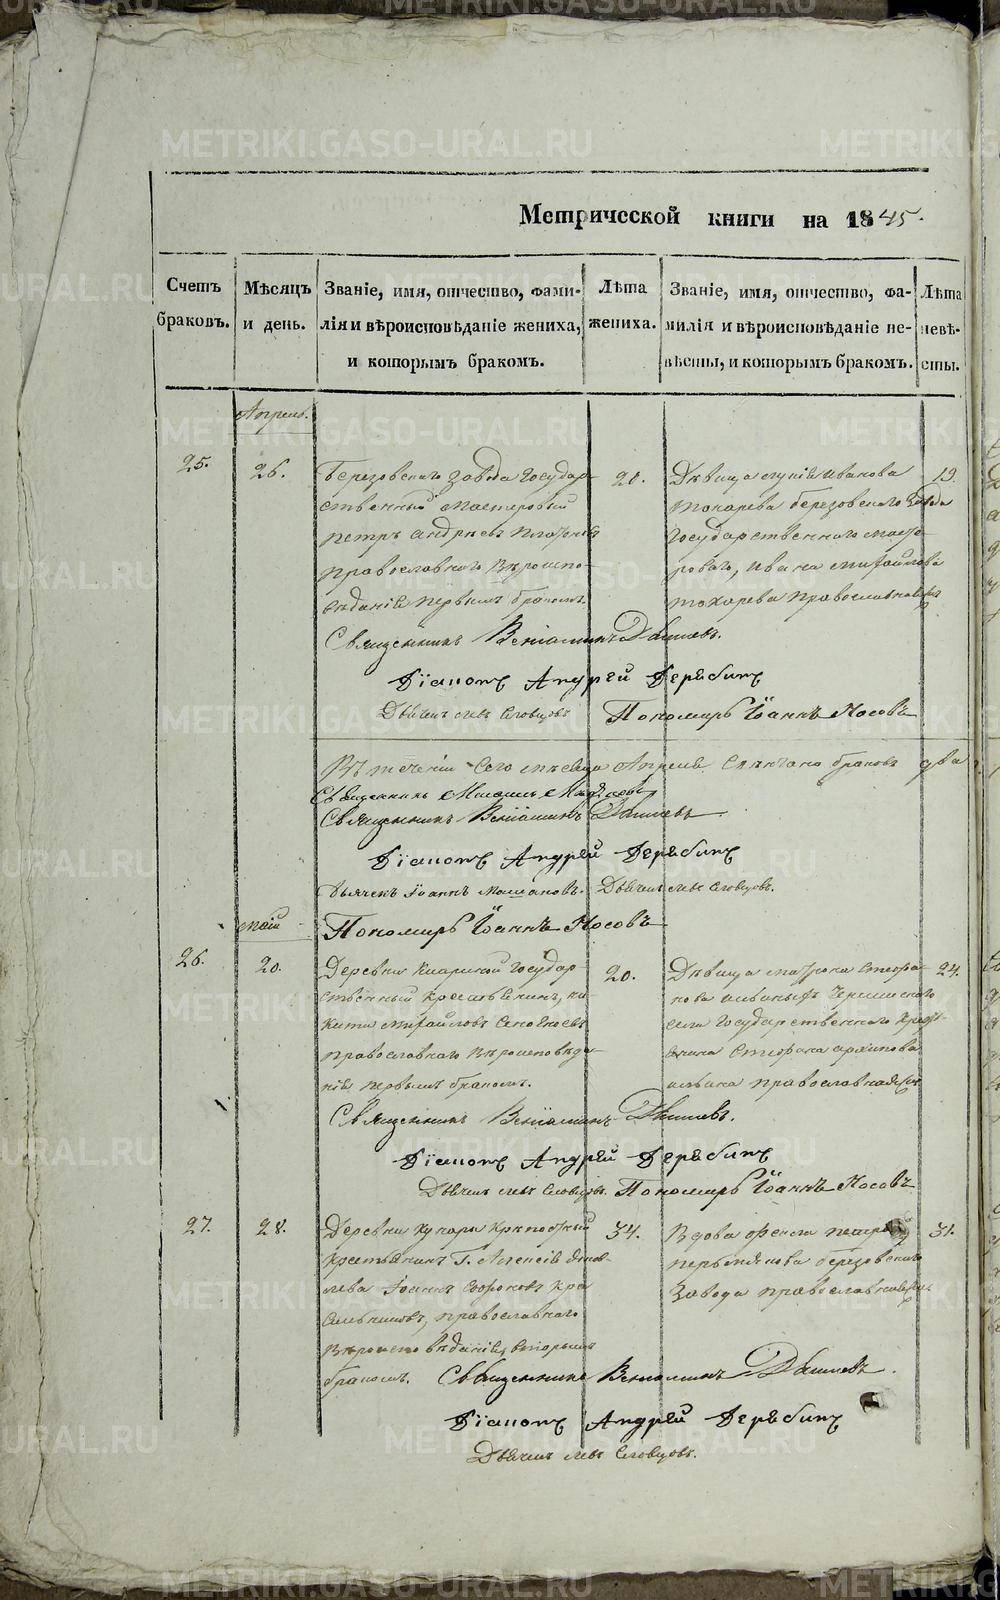 METRIKI.GASO-URAL.RU
Метрической книги на 1845.
Счетъ браковъ.
Мѣсяцъ и день.
Званіе, имя, отчество, фами-
лія и вѣроисповѣданіе жениха,
и которымъ бракомъ.
Лѣта жениха.
Званіе, имя, отчество, фа-
милія и вѣроисповѣданіе не-
вѣсты, и которымъ бракомъ.
Лѣта невѣ-
сты.
Апрель.
25.
26.
Березовскаго завода Государ-
ственный мастеровый
Петръ Андреевъ
православнаго вѣроиспо-
вѣданія первымъ бракомъ.
20.
Дѣвица Иванова
Токарева березовскаго завода
Государственнаго масте-
роваго, Ивана Михайлова
Токарева православнаго
19.
Священникъ Веніаминъ
Діаконъ Андрей Дерябинъ
Дьячекъ Левъ Словцовъ Пономарь Іоаннъ Носовъ
Въ теченіи сего мѣсяца Апреля вѣнчано браковъ два
Священникъ
Священникъ Веніаминъ
Діаконъ Андрей Дерябинъ
Дьячекъ Іоаннъ Дьячекъ Левъ Словцовъ.
Май
Пономарь Іоаннъ Носовъ
26.
20.
Деревни Государ-
ственный крестьянинъ Ни-
кита Михайловъ
православнаго вѣроисповѣда-
нія первымъ бракомъ.
20.
Дѣвица Матрона Стефа-
нова
села Государственнаго кресть-
янина Стефана Архипова
православная
24.
Священникъ Веніаминъ
Діаконъ Андрей Дерябинъ
Дьячекъ Левъ Словцовъ. Пономарь Іоаннъ Носовъ
27.
28.
Деревни крѣпостный
крестьянинъ Г. Алексія Яков-
лева Іоаннъ Софроновъ Кра
сильниковъ, православнаго
вѣроисповѣданія, вторымъ
бракомъ.
34.
Вдова Фекла Петрова
березовскаго
завода православнаго
31.
Священникъ Веніаминъ
Діаконъ Андрей Дерябинъ
Дьячекъ Левъ Словцовъ.